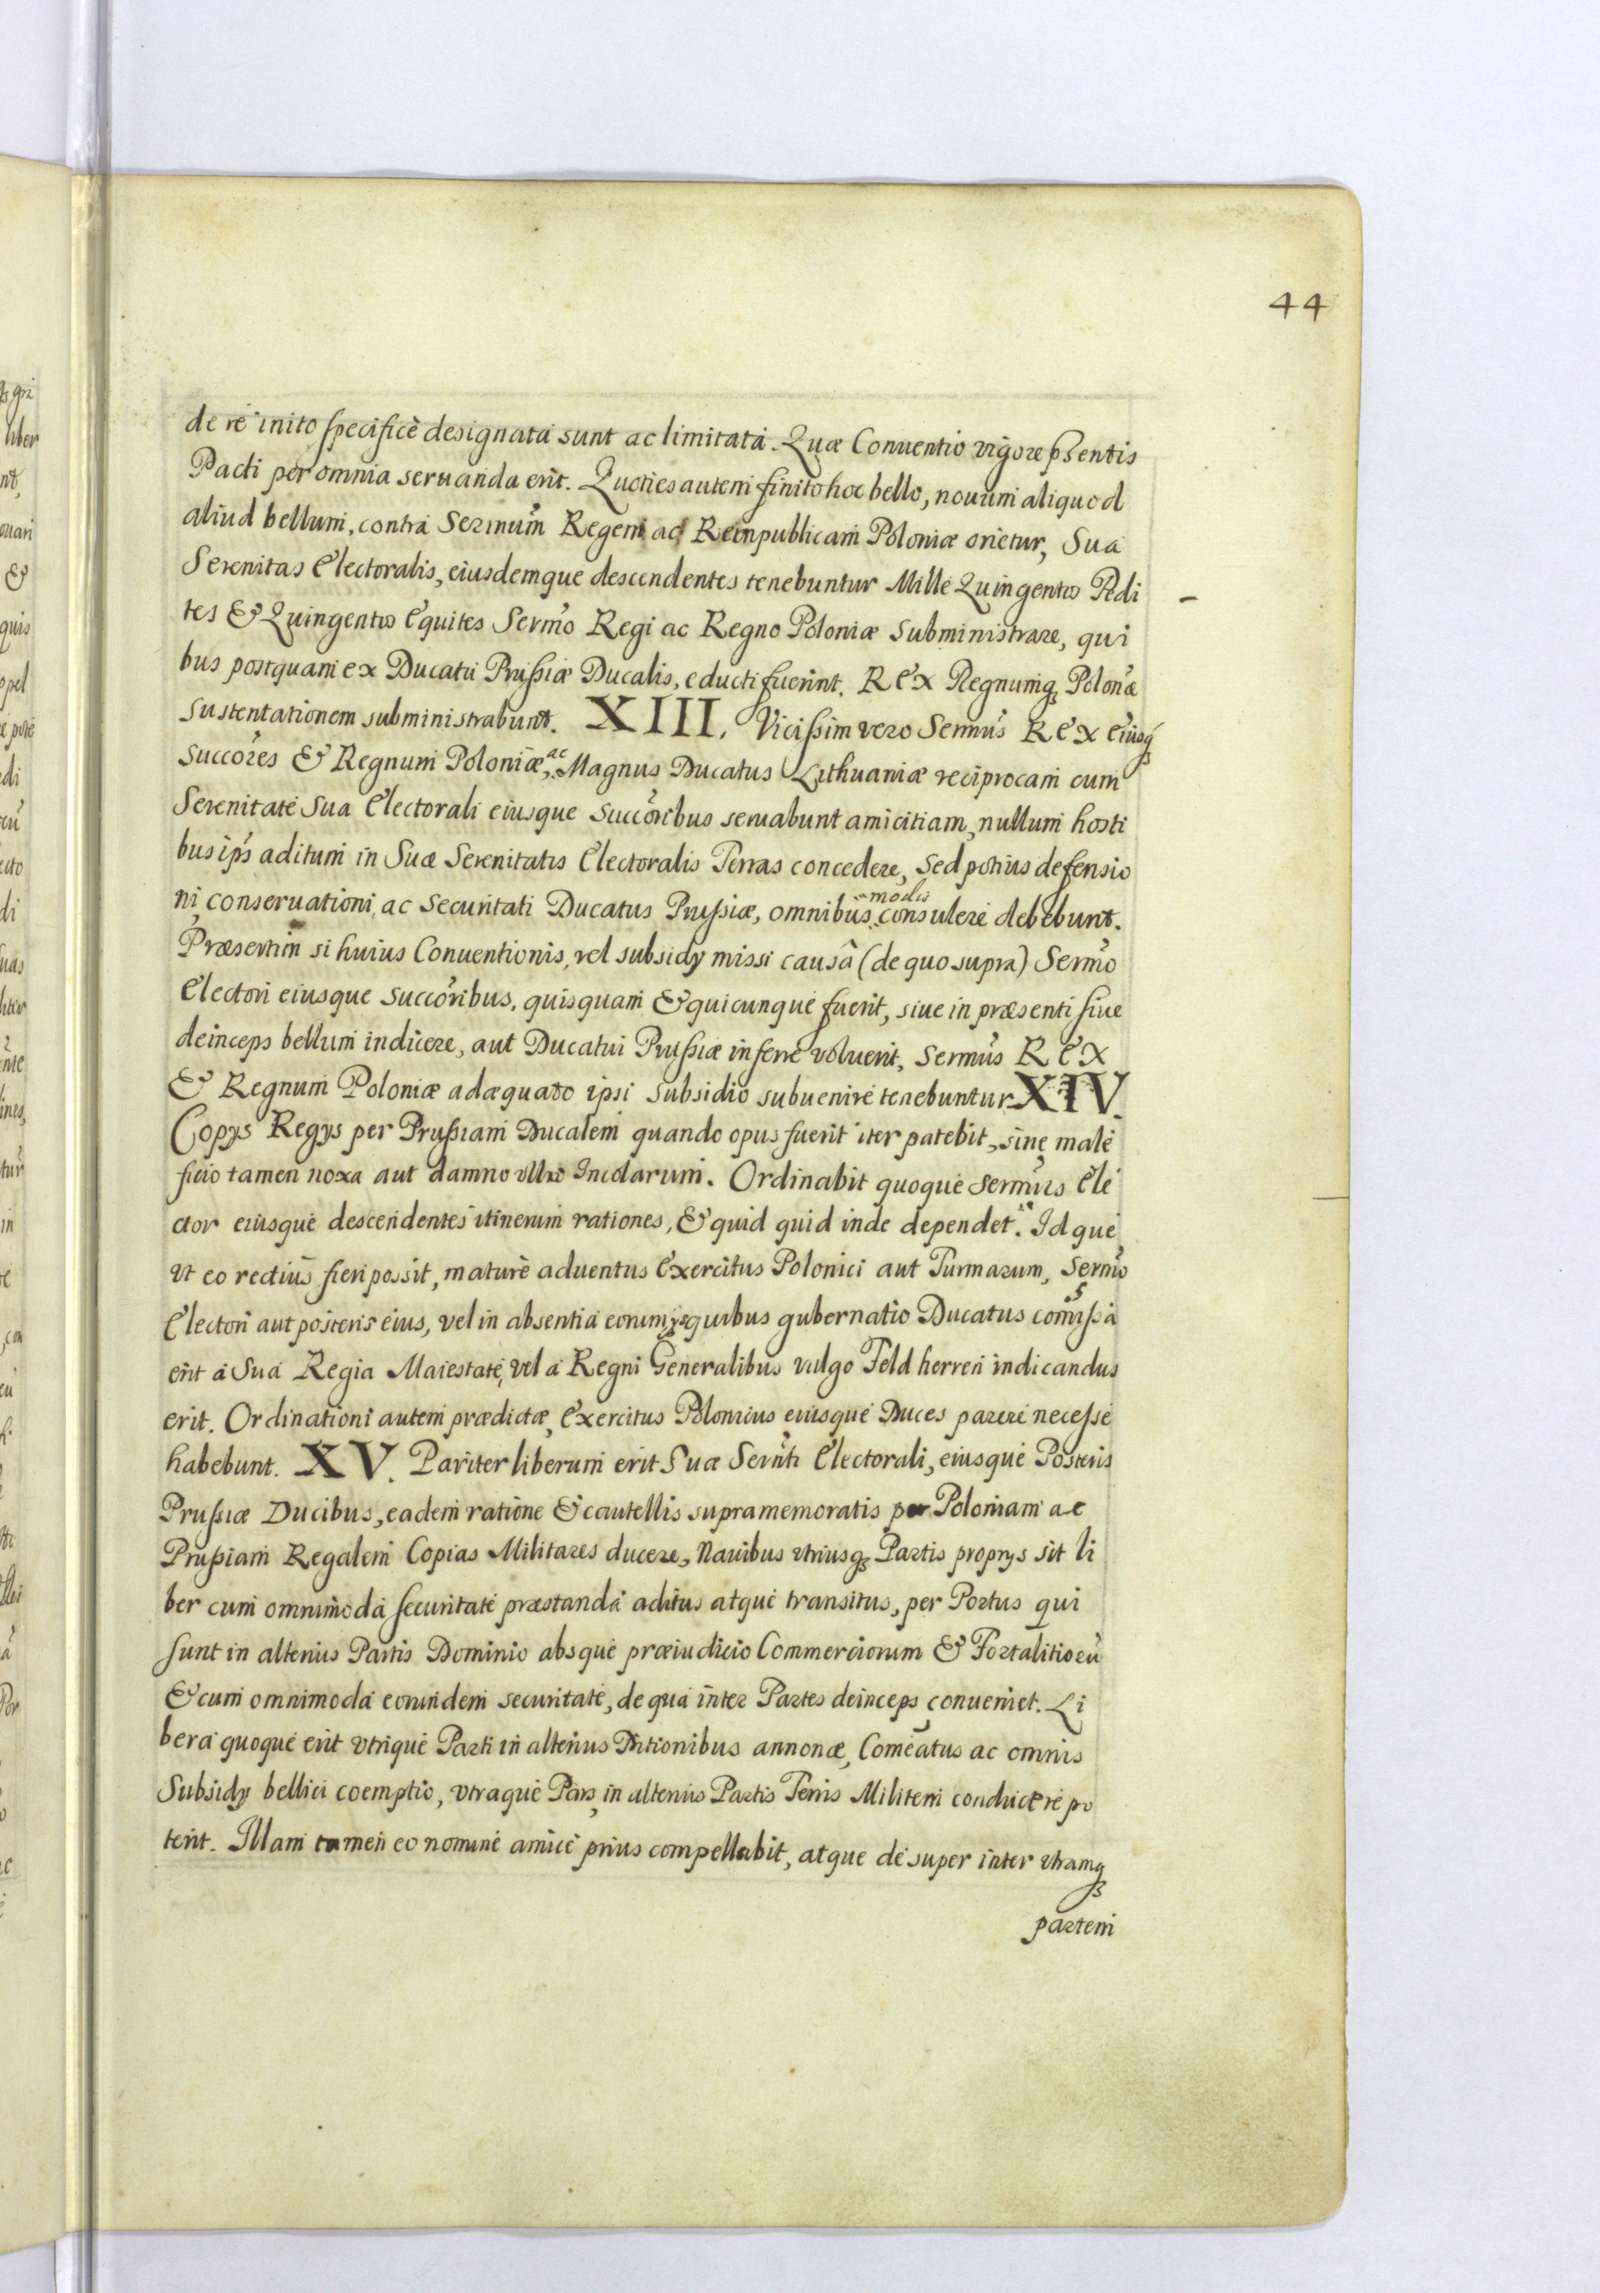 44
de re inito specificè designata sunt ac limitata. Quæ Conuentio vigore pñsentis
Pacti per omnia seruanda erit. Quoties autem finito hoc bello, nouum aliquod
aliud bellum, contra Sermum Regem ac Reinpublicam Poloniæ orietur, Sua
Serenitas Electoralis, eiusdemque descendentes tenebuntur Mille Quingentos Pedi
tes & Quingentos Equites Sermo Regi ac Regno Poloniæ subministrare, qui
bus postquam ex Ducatu Prussiæ Ducalis, educti fuerint. REX Regnumq Polonæ
sustentationem subministrabunt. XIII. Vicissim vero Sermus REX eiusq
succores & Regnum Poloniæ, ac Magnus Ducatus Lithuaniæ reciprocam cum
Serenitate Sua Electorali eiusque succoribus seruabunt amicitiam, nullum hosti
bus ips aditum in Suæ Serenitatis Electoralis Terras concedere, sed potius defensio
ni conseruationi, ac securitati Ducatus Prussiæ, omnibus modis consulere debebunt.
Præsertim si huius Conuentionis, vel subsidy missi causâ (de quo supra) Sermo
Electori eiusque succoribus, quisquam & quicunque fuerit, siue in præsenti siue
deinceps bellum indicere, aut Ducatui Prussiæ inferre voluerit, Sermus REX
& Regnum Poloniæ adæquato ipsi subsidio subuenire tenebuntur XIV.
Copys Regys per Prussiam Ducalem quando opus fuerit iter patebit, sine male
ficio tamen noxa aut damno vllo Incolarum. Ordinabit quoque Sermus Ele
ctor eiusque descendentes itinerum rationes, & quid quid inde dependet. Id que
vt eo rectius fieri possit, maturè aduentus Exercitus Polonici aut Turmarum, Sermo
Electori aut posteris eius, vel in absentia eorum ys quibus gubernatio Ducatus comissa
erit a Sua Regia Maiestate, vel a Regni Generalibus vulgo Feld herren indicandus
erit. Ordinationi autem prædictæ, Exercitus Polonicus eiusque Duces parere necesse
habebunt. XV. Pariter liberum erit Suæ Sernti Electorali, eiusque Posteris
Prussiæ Ducibus, eadem ratione & cautellis supramemoratis per Poloniam ac
Prussiam Regalem Copias Militares ducere, Nauibus vtriusq Partis proprys sit li
ber cum omnimoda securitate præstanda aditus atque transitus, per Portus qui
sunt in alterius Partis Dominio absque præiudicio Commerciorum & Fortalitiorũ
& cum omnimoda eorundem securitate, de qua inter Partes deinceps conueniet. Li
bera quoque erit vtrique Parti in alterius Ditionibus annonæ, Comeatus ac omnis
Subsidy bellici coemptio, vtraque Pars, in alterius Partis Terris Militem conducere po
terit. Illam tamen eo nomine amice prius compellabit, atque de super inter vtramq
partem